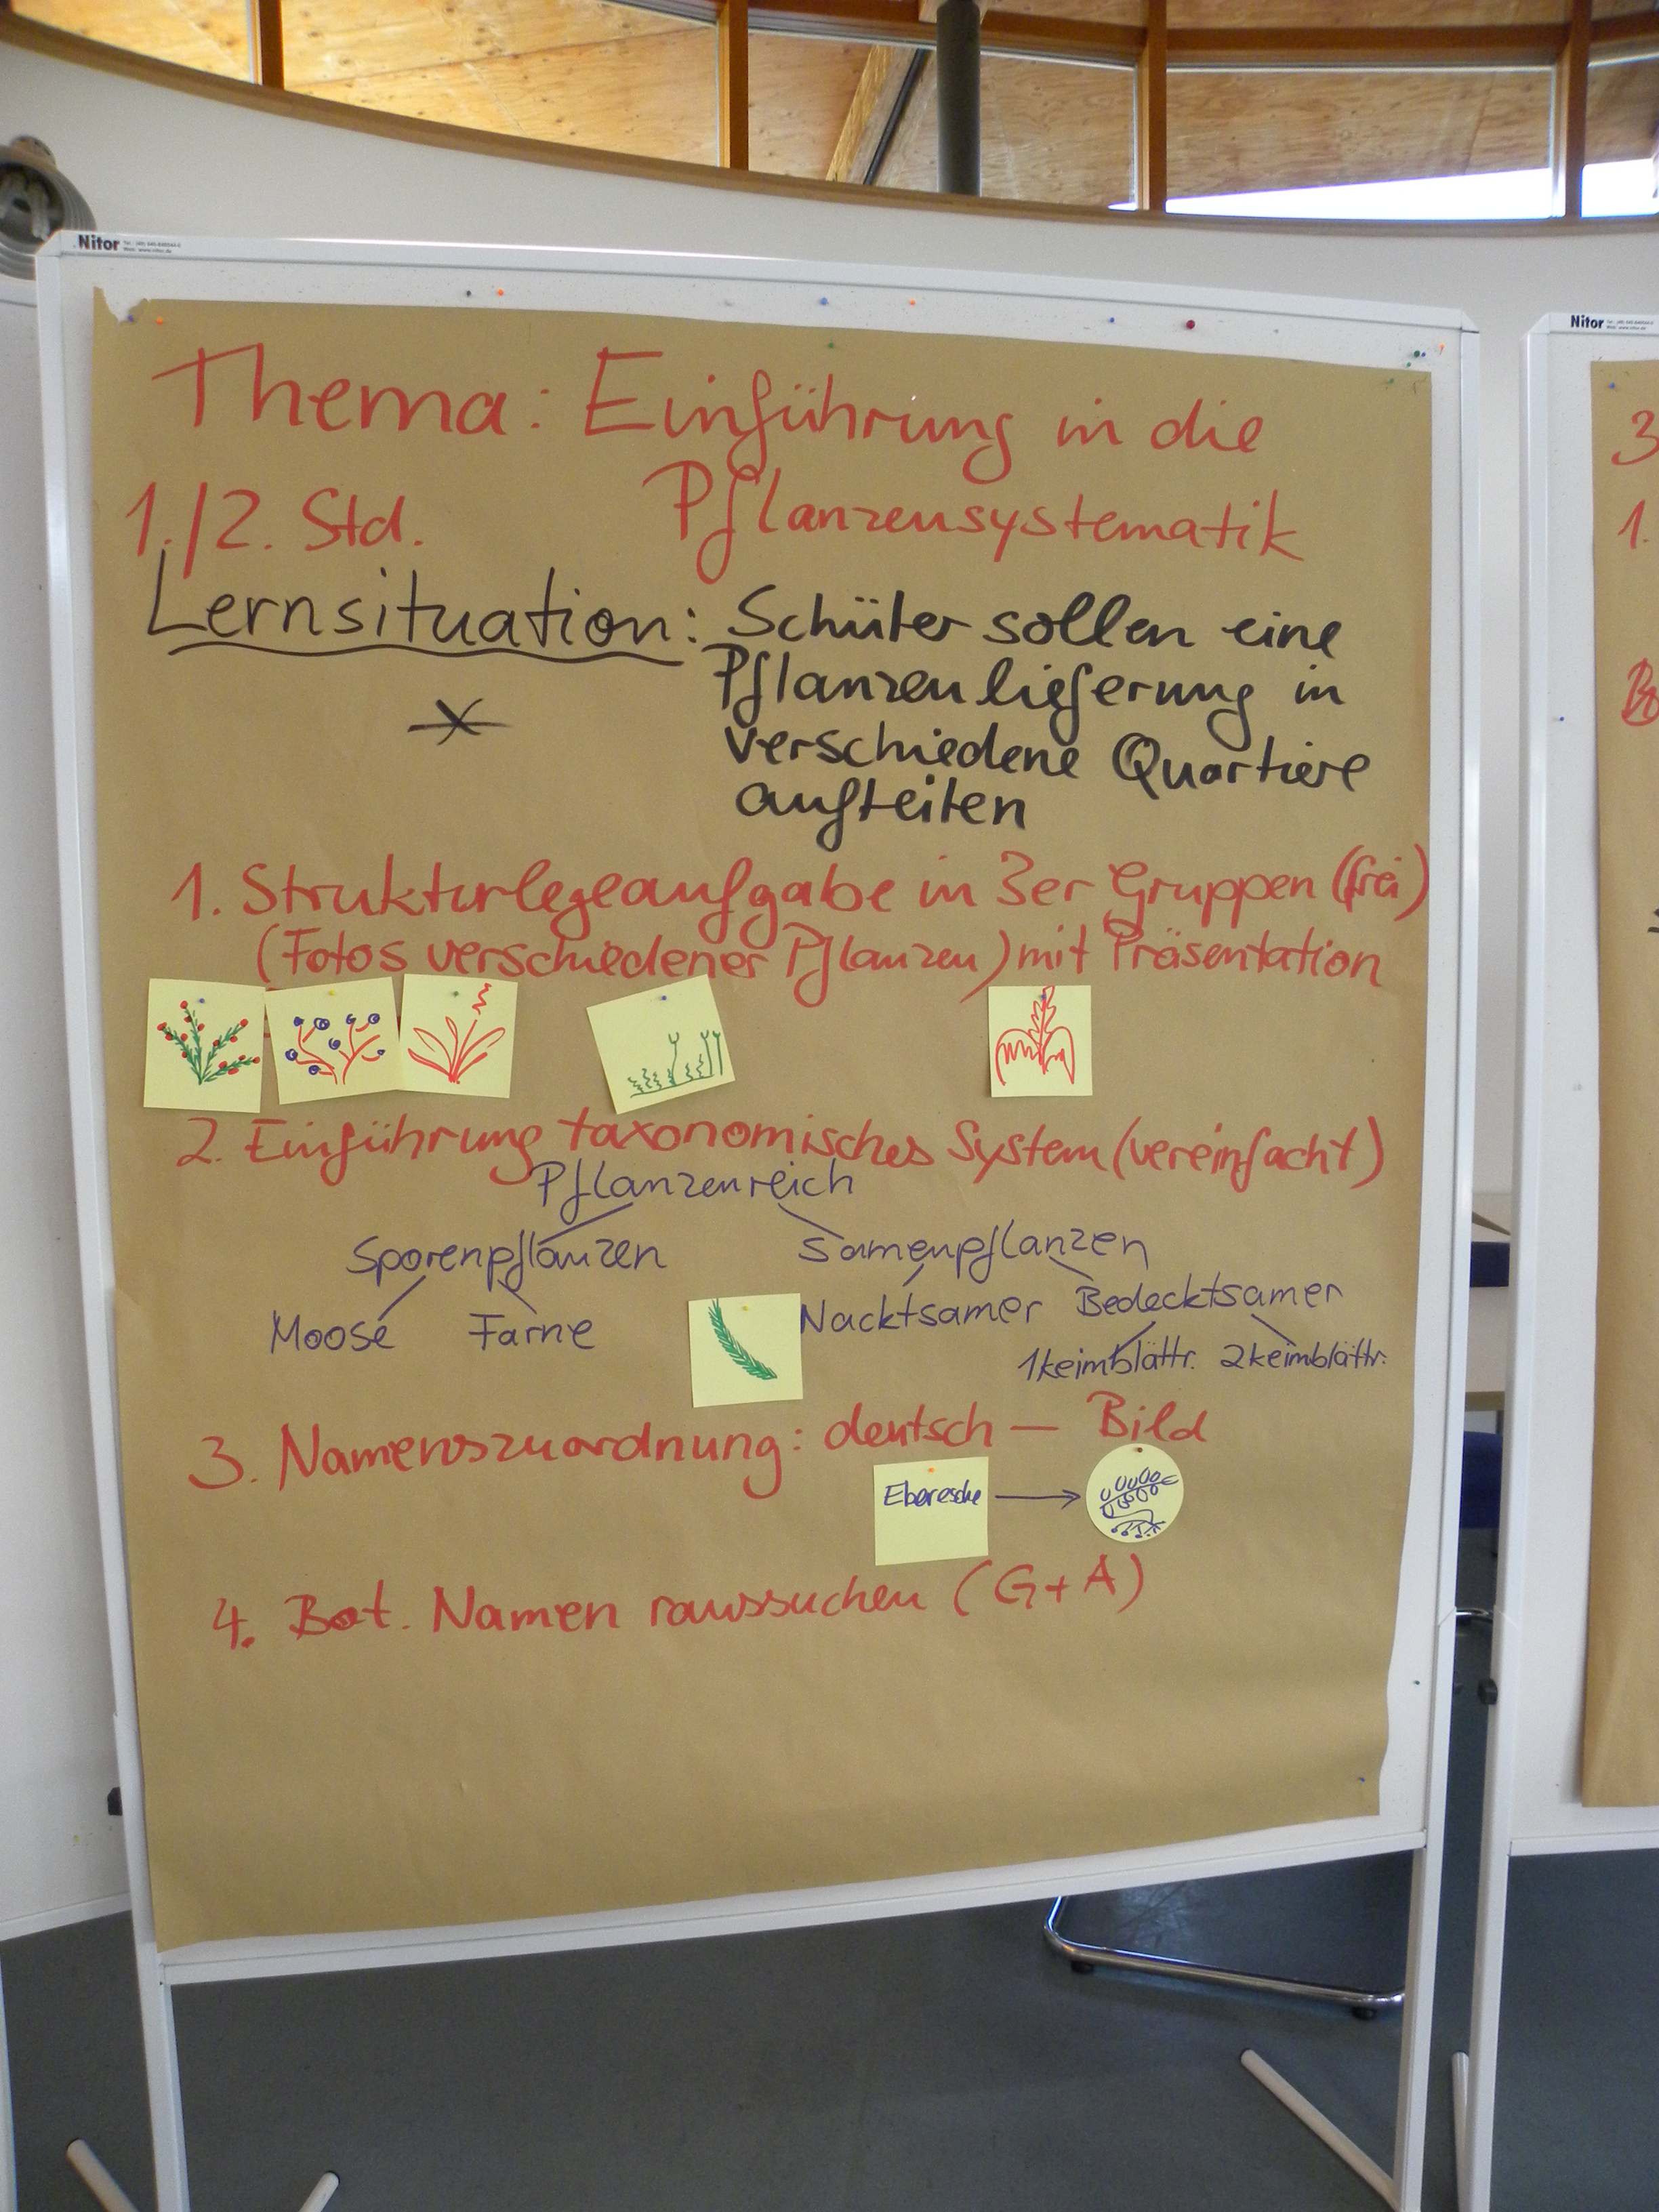 Nitor
Nitor
Thema: Einführung in die
Pflanzensystematik
1./2. Std.
Lernsituation: Schüler sollen eine
Pflanzenlieferung in
verschiedene Quartiere
aufteilen
1. Strukturlegeaufgabe in 3er Gruppen (frei)
(Fotos verschiedener Pflanzen) mit Präsentation
2. Einführung taxonomisches System (vereinfacht)
Pflanzenreich
Sporenpflanzen Samenpflanzen
Moose Farne Nacktsamer Bedecktsamer
1keimblättr. 2keimblättr.
3. Namenszuordnung: deutsch — Bild
Eberesche
4. Bot. Namen raussuchen (G+A)
3
1.